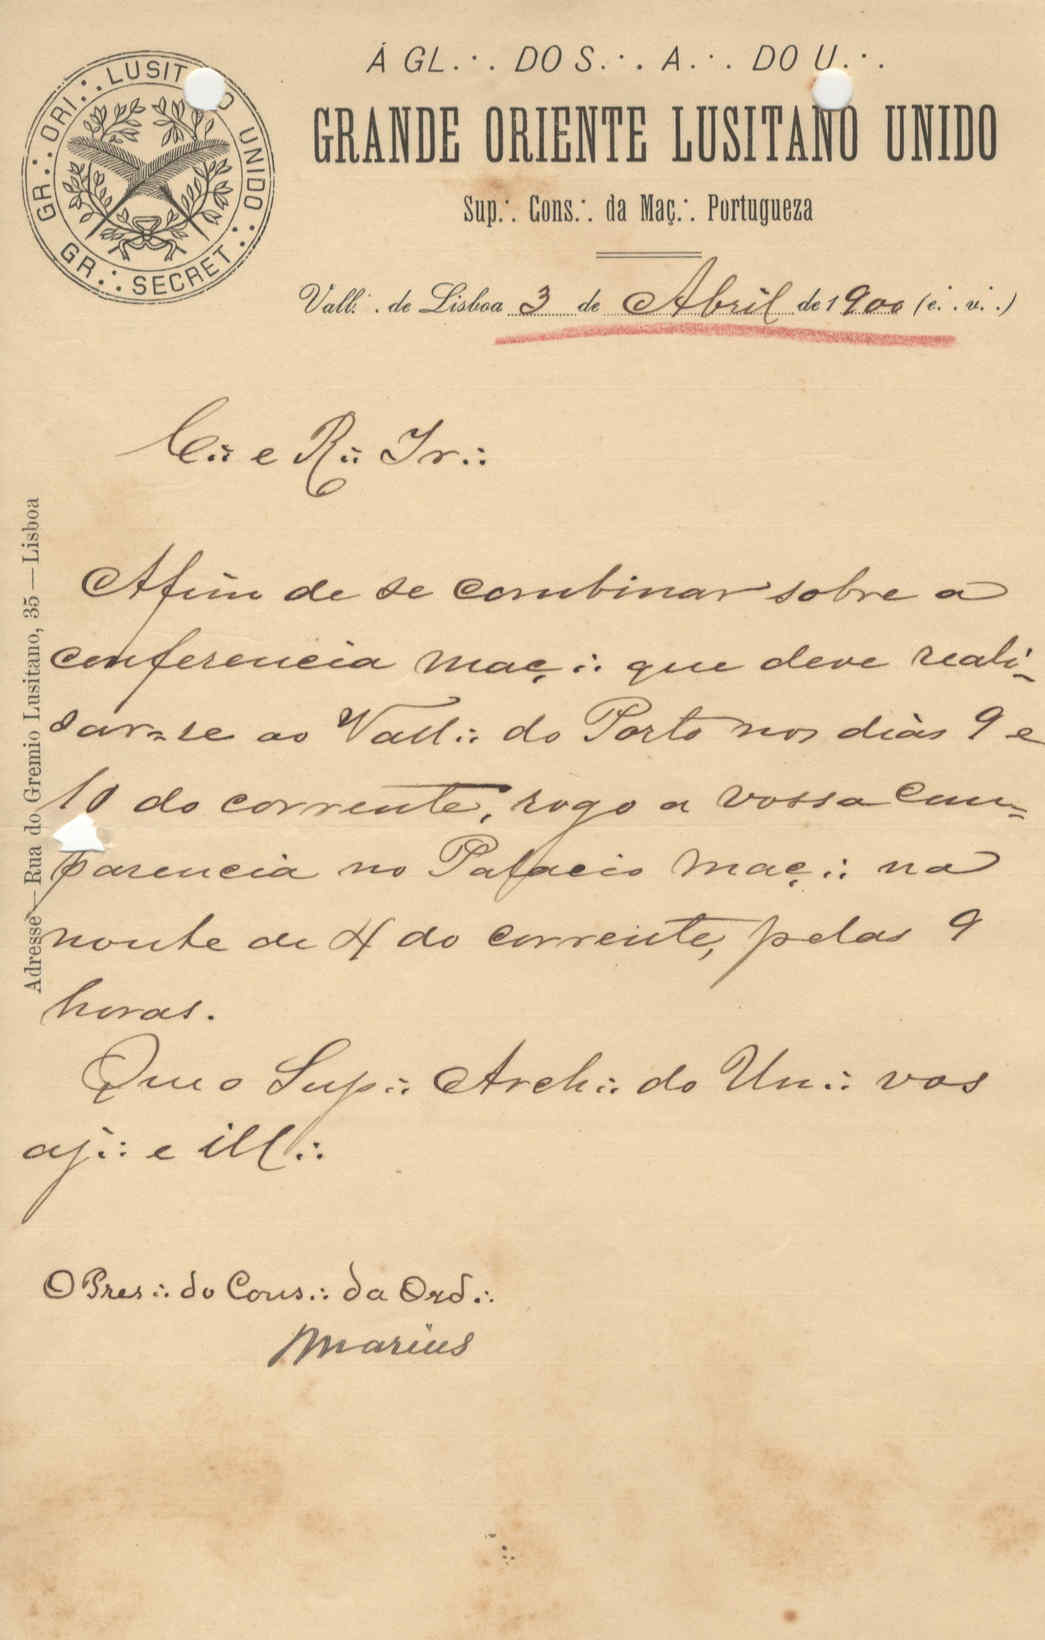 Á GL.·. DO S.·. A.·. DO U.·.
GR.·. ORI.·. LUSITANO UNIDO.·.
GR.·. SECRET.·.
GRANDE ORIENTE LUSITANO UNIDO
Sup.·. Cons.·. da Maç.·. Portugueza
Vall.·. de Lisboa 3 de Abril de 1900 (e.·. v.·.)
C.·. e R.·. Ir.·.
Afim de se combinar sobre a
conferencia maç.·. que deve reali-
sar-se ao Vall.·. do Porto nos dias 9 e
10 do corrente, rogo a vossa com-
parencia no Palacio Maç.·. na
noute de 4 do corrente, pelas 9
horas.
Que o Sup.·. Arch.·. do Un.·. vos
aj.·. e ill.·.
O Pres.·. do Cons.·. da Ord.·.
Marius
Adresse—Rua do Gremio Lusitano, 35—Lisboa